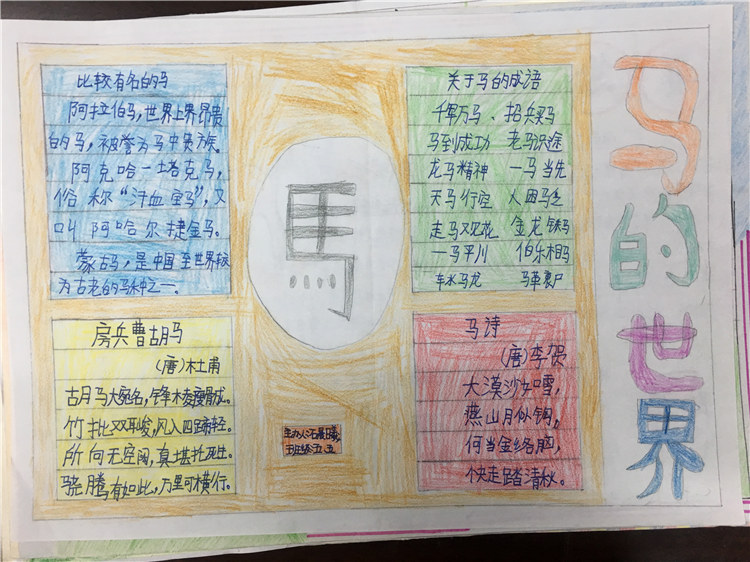 比较有名的马
阿拉伯马,世界上界昂贵
的马,被誉为马中贵族。
阿克哈一塔克马,
俗称“汗血宝马”,又
叫阿哈尔捷金马。
蒙古马,是中国至世界较
为古老的马种之一.
房兵曹胡马
(唐)杜甫
胡马大宛名,锋棱瘦骨成。
竹批双耳峻,风入四蹄轻。
所向无空阔,真堪托死生。
骁腾有如此,万里可横行。
馬
主办人:石
班级:五、五
关于马的成语
千军万马、招兵买马
马到成功 老马识途
龙马精神 一马当先
天马行空 人困马乏
走马观花 金 铁马
一马平川 伯乐相马
车水马龙 马革裹尸
马诗
(唐)李贺
大漠沙如雪,
燕山月似钩,
何当金络脑,
快走踏清秋。
马的世界